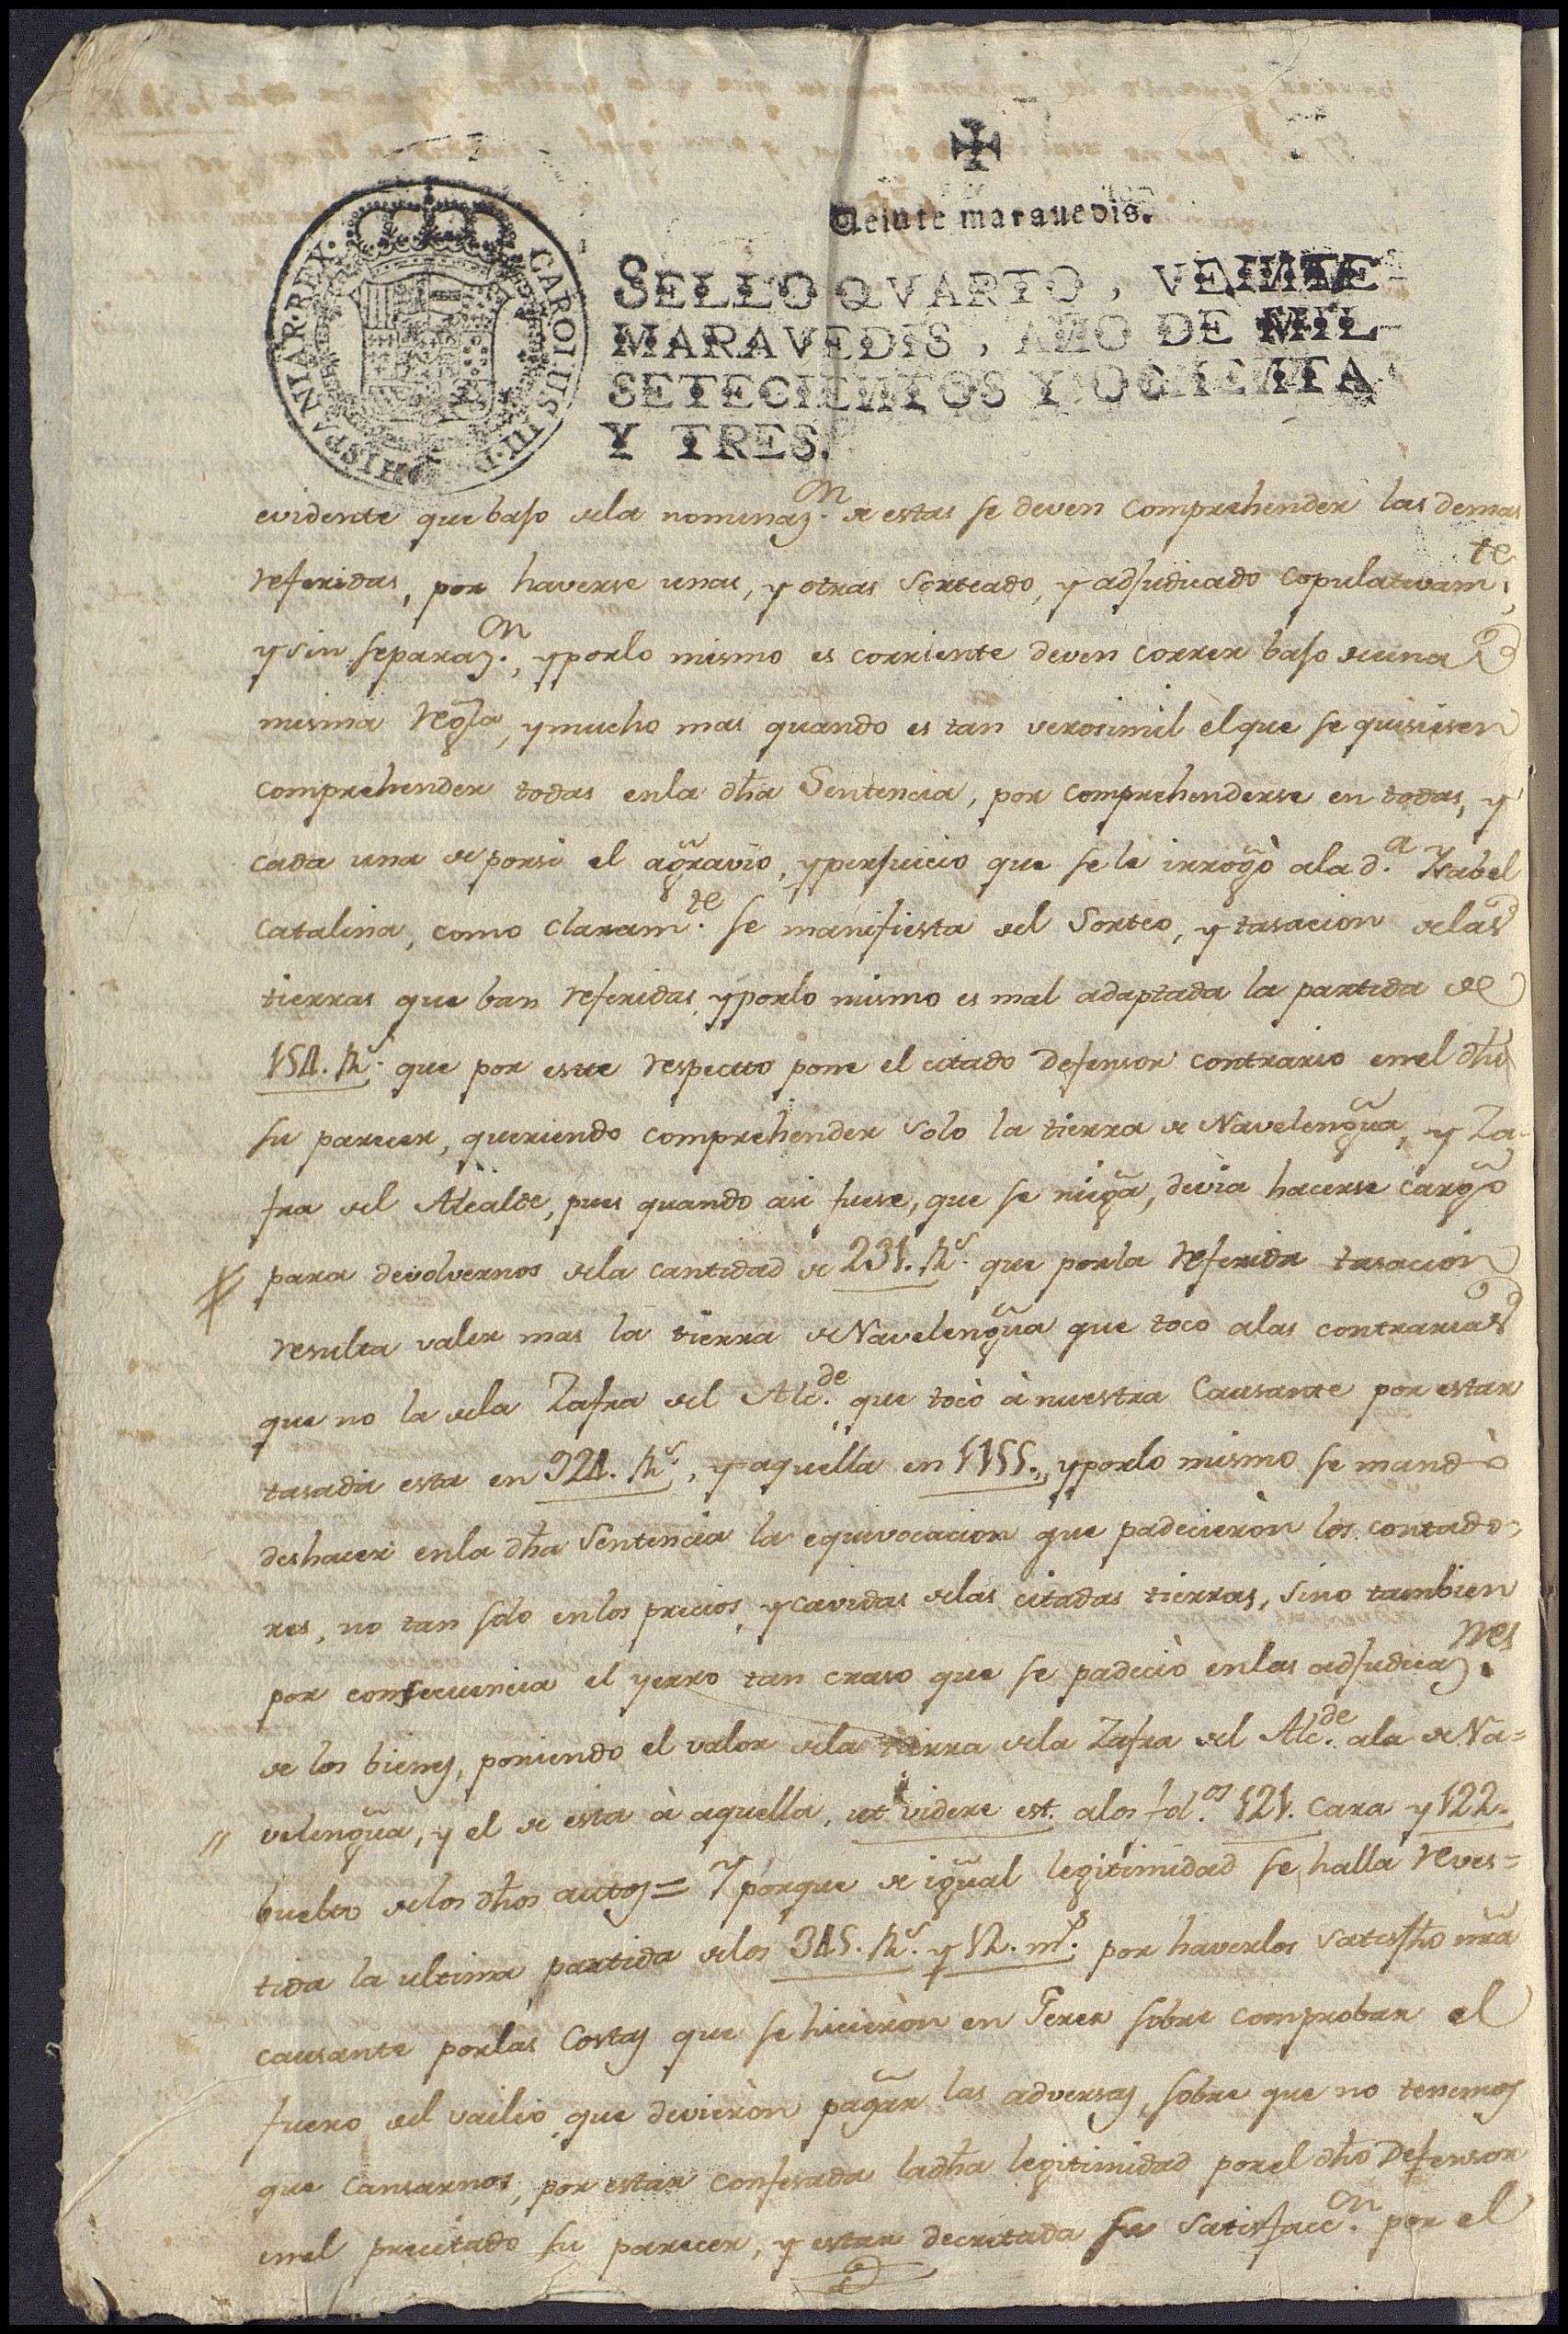 Veinte maravedis.
SELLO QVARTO, VEINTE
MARAVEDIS, AÑO DE MIL
SETECIENTOS Y OCHENTA
Y TRES.
CAROLUS III D HISPANIAR REX
evidente que bajo dela nominaz.on de estas se deven comprehender las demas
referidas, por haverse unas, y otras sorteado, y adjudicado copulativam.te,
y sin separaz.on, y porlo mismo es corriente deven correr bajo de una
misma regla, y mucho mas quando es tan verosimil èl que se quisiesen
comprehender todas enla dha Sentencia, por comprehenderse en todas, y
cada una de porsi el agravio, y perjuicio que se le irrogò ala d.a Ysabel
Catalina, como claram.te se manifiesta del Sorteo, y tasacion delas
tierras que ban referidas, y porlo mismo es mal adaptada la partida de
154. rs. que por este respecto pone el citado Defensor contrario en el dho
su parecer, queriendo comprehender solo la tierra de Navelengua, y Za-
fra del Alcalde, pues quando asi fuese, que se niega, devia hacerse cargo
para devolvernos dela cantidad de 231. rs. que porla referida tasacion
resulta valer mas la tierra de Navelengua que toco alas contrarias
que no la dela Zafra del Alc.de que tocò à nuestra Causante por estar
tasada esta en 924. rs., y aquella en 1155., y porlo mismo se mandò
deshacer enla dha Sentencia la equivocacion que padecieròn los contado-
res, no tan solo enlos precios, y cavidas delas citadas tierras, sino tambien
por consecuencia el yerro tan craso que se padeciò enlas adjudicaz.nes
de los bienes, poniendo el valor dela tierra dela Zafra del Alc.de ala de Na=
velengua, y el de esta à aquella, ut videre est. alos fol.os 121. cara y 122.
buelto delos dhos autos = Y porque de igual legitimidad se halla reves=
tida la ultima partida delos 345. rs. y 12. ms. por haverlos satisfho nra
causante porlas Costas que se hicieròn en Ferer sobre comprobar el
fuero del vailio que devieròn pagar las adversas, sobre que no tenemos
que cansarnos, por estar confesada ladha legitimidad porel dho Defensor
en el precitado su parecer, y estar decretada su satisfacc.on por el